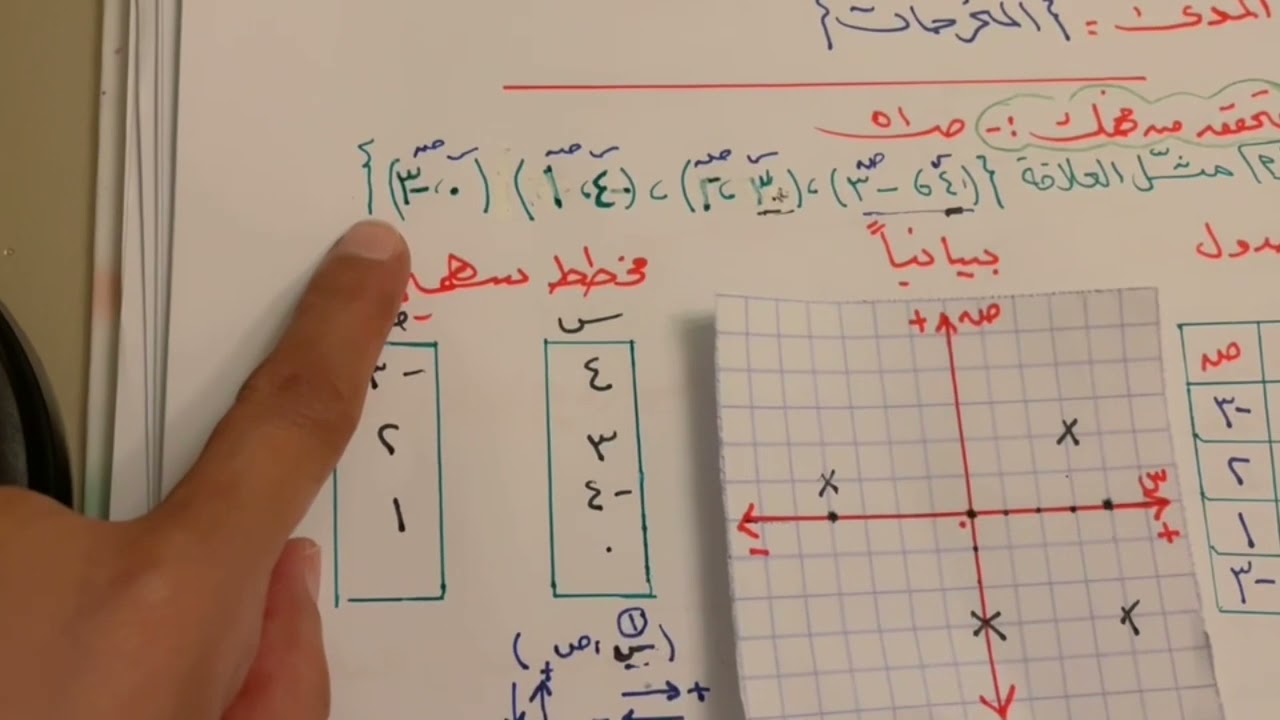 المدى : {المخرجات}
تحقق من فهمك :- ص ٥١
مثّل العلاقة {(٤ ، -٣) ، (٣ ، ٢) ، (-٤ ، ١) (٠ ، -٣)}
س ص س ص س ص س ص
بيانياً
مخطط سهمي
س
٤
٣
-٤
٠
-٣
٢
١
+ ص
س
+
-
٠
ص
-٣
٢
١
-٣
١
(س ، ص)
+
+